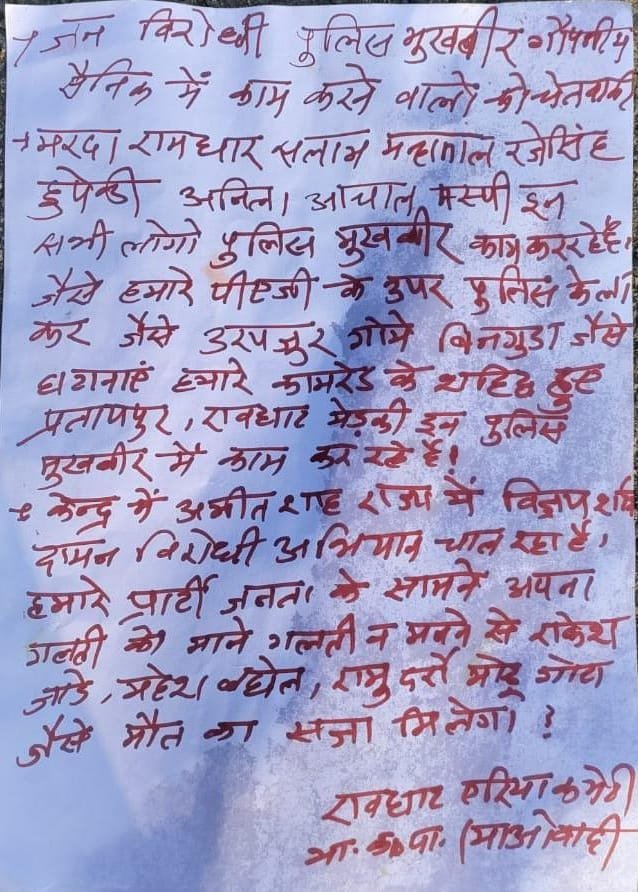 → जन विरोधी पुलिस मुखबीर गोपनीय
सैनिक में काम करने वालो को चेतवानी
→ भरदा रामधार सलाम महापाल रजेसिंह
डुपेन्डी अनिल। आचाल मस्पी इन
सभी लोगो पुलिस मुखबीर काम कर रहे है।
जैसे हमारे पीएजी के उपर पुलिस के ला
कर जैसे उरपजुर गोमे बिनगुडा जैसे
घागनाएं हमारे कामरेड के शहिद हुए
प्रतापपुर, रावघाट मेड़की इन पुलिस
मुखबीर में काम कर रहे है!
→ केन्द्र में अमीत शाह राज्य में विजय शर्मा
दामन विरोधी अभियान चाल रहा है,
हमारे पार्टी जनता के सामने अपना
गलती को माने गलती न मनने से राकेश
जाडे, महेश बघेल, रामु दर्रो मोटू गोटा
जैसे मौत का सजा मिलेगा ?
रावघाट एरिया कमेटी
भा. क. पा. (माओवादी